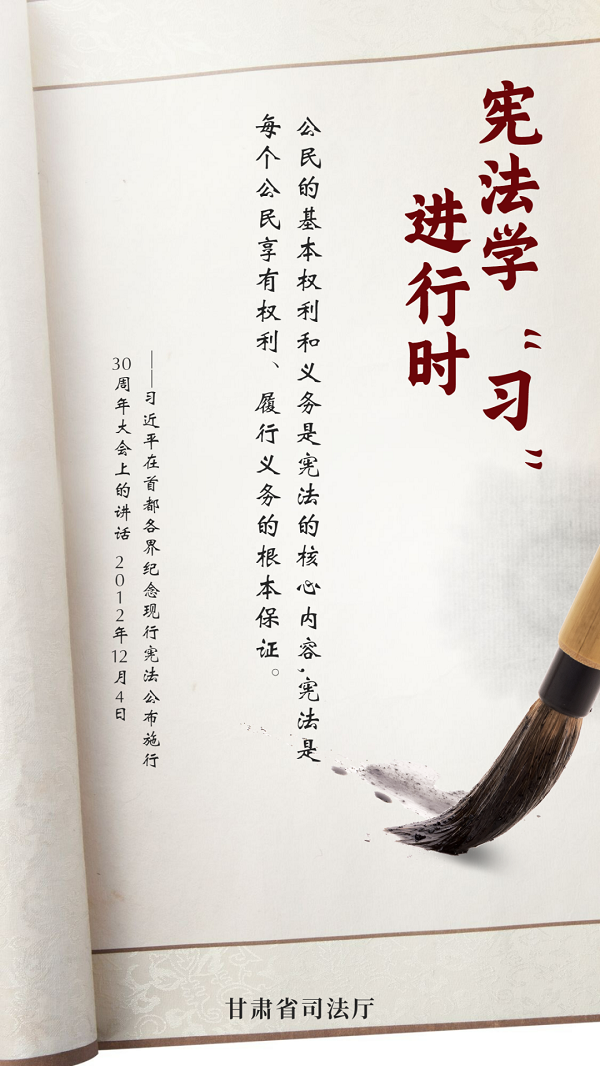 宪法学“习”
进行时
公民的基本权利和义务是宪法的核心内容，宪法是
每个公民享有权利、履行义务的根本保证。
——习近平在首都各界纪念现行宪法公布施行
30周年大会上的讲话 2012年12月4日
甘肃省司法厅